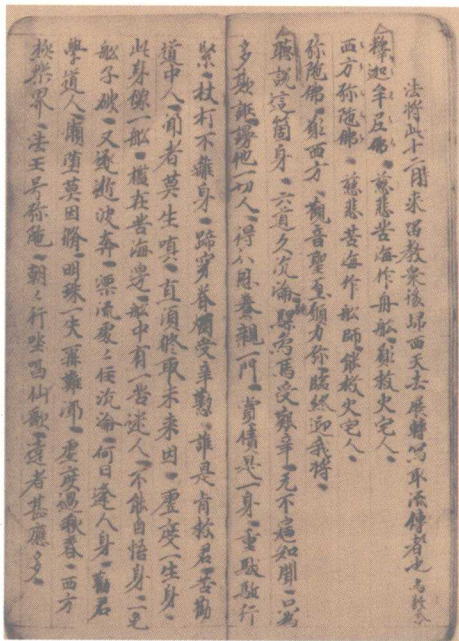 法將此十二月來唱教衆後歸西天去展轉寫取流傳者也
釋迦牟尼佛慈悲苦海作舟船願救火宅人
西方弥陁佛慈悲苦海作船師能救火宅人
弥陁佛願西方觀音聖至願力弥臨終迎我將
聽說這箇身六道久沉淪馬受艱辛元不遍知聞只為
多欺誑謗他一切人得八養親一門賞債是一身重馱馱行
緊杖打不離身蹄穿脊爛受辛懃誰是肯救君苦勸
道中人聞者莫生嗔直須修取未來因虛度一生身
此身像一船櫂在苦海邊船中有一苦迷人不能自悟身一宅
船子破又逐逝波奔漂流處々任沉淪何日逢人身勸君
學道人墮莫因明珠一失再難虛度過幾春西方
極樂界法王号弥陁朝々行坐唱仙歌達者甚應多